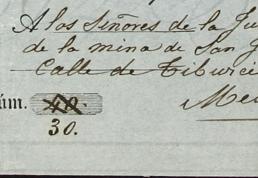 A los Señores de la Ju
de la mina de San J
Calle de Tiburci
Me
úm. 40.
30.